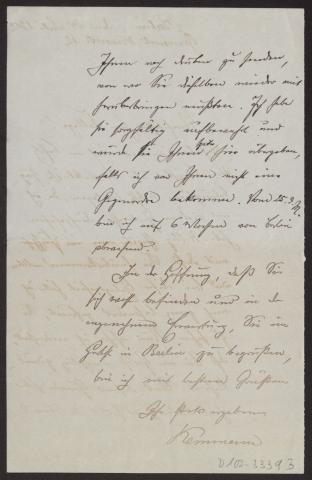 Ihnen noch drüben zu senden,
von wo Sie dieselben wieder mit
herüberbringen müßten. Ich habe
sie sorgfältig aufbewahrt und
würde sie Ihnen hier übergeben,
falls ich von Ihnen nicht eine
Gegenordre bekomme. Vom 15. d. M.
bin ich auf 6 Wochen von Berlin
abwesend.
In der Hoffnung, daß Sie
sich wohl befinden und in der
angenehmen Erwartung, Sie im
Herbst in Berlin zu begrüßen,
bin ich mit besten Grüßen
Ihr stets ergebener
Kemmann
D 102-3339 3